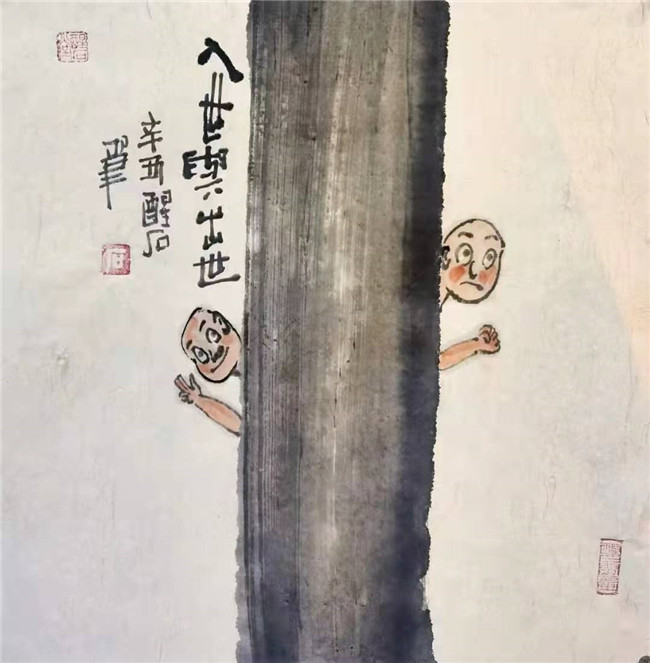 入世與出世
辛丑醒石
筆
石